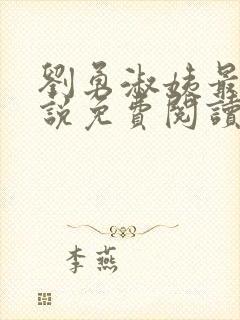 劉勇淑姨最
說免費閱讀
李燕